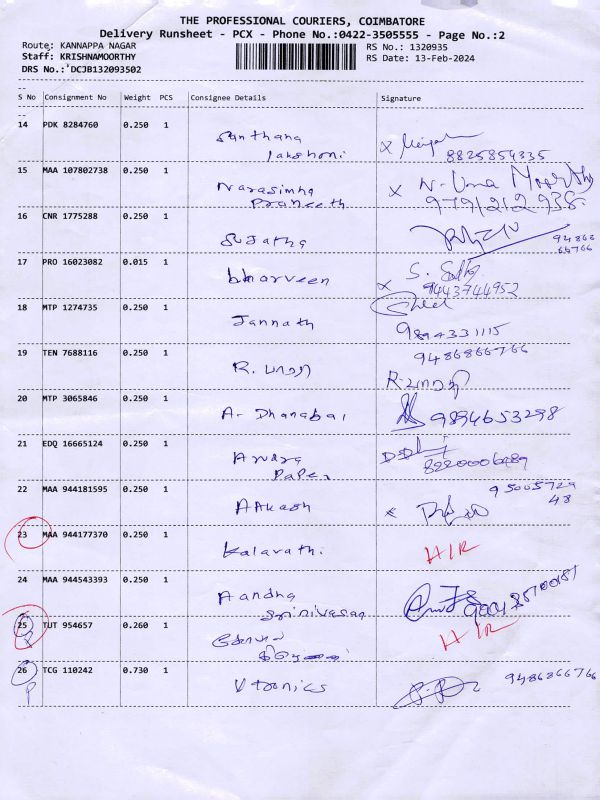 THE PROFESSIONAL COURIERS, COIMBATORE
Delivery Runsheet - PCX - Phone No.:0422-3505555 - Page No.:2
Route: KANNAPPA NAGAR
Staff: KRISHNAMOORTHY
DRS No.: DCJB132093502
RS No.: 1320935
RS Date: 13-Feb-2024
S No Consignment No Weight PCS Consignee Details Signature
14 PDK 8284760 0.250 1
Santhana
lakshmni
x
8825854335
15 MAA 107802738 0.250 1
Narasimha
Praneeth
x N. Uma Moorthy
9791212938
16 CNR 1775288 0.250 1
Sujatha
94866
66766
17 PRO 16023082 0.015 1
bharveen
x S.
9443744952
18 MTP 1274735 0.250 1
Jannath
9894331115
19 TEN 7688116 0.250 1
R. மாரி
9486866766
R. மாரி
20 MTP 3065846 0.250 1
A- Dhanabal
9894653298
21 EDQ 16665124 0.250 1
Paper
22 MAA 944181595 0.250 1
AAkash
x
95005729
48
23 MAA 944177370 0.250 1
Kalavathi
H/R
24 MAA 944543393 0.250 1
Aandha
Srinivasan
25 TUT 954657 0.260 1
H/R
26 TCG 110242 0.730 1
P
Vtronics
9486866766